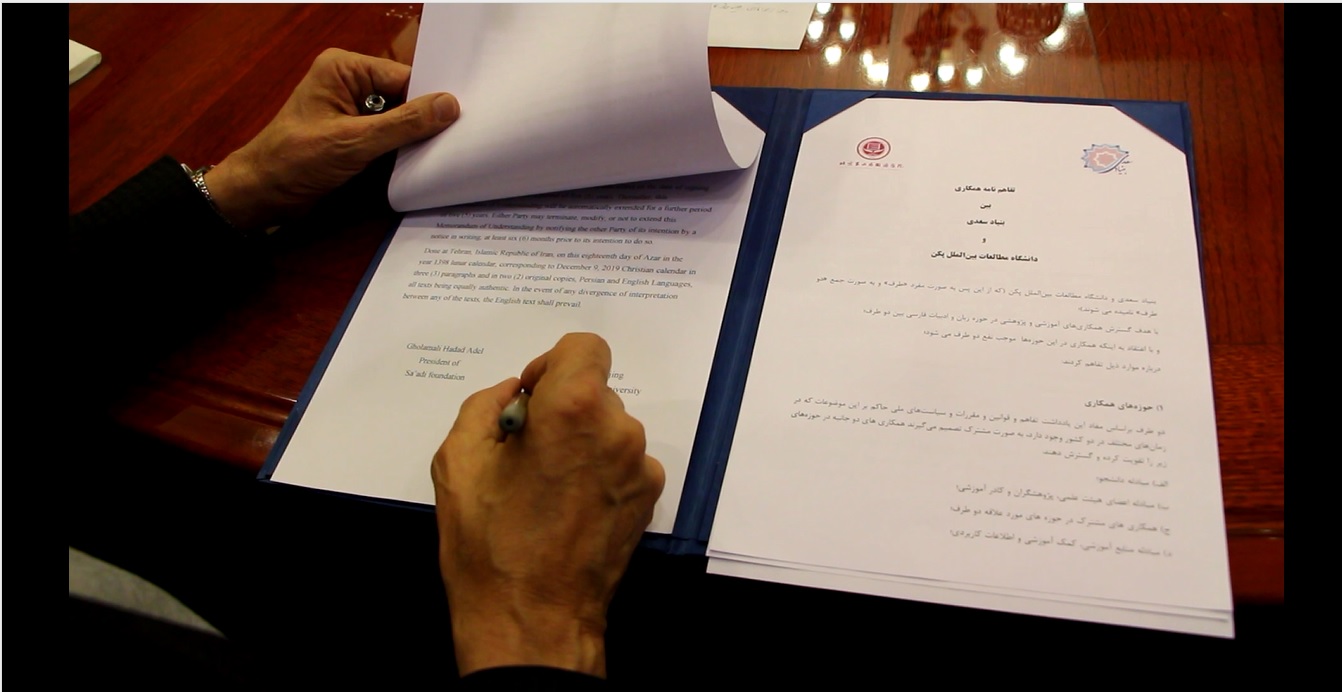 be automatically extended for a further period
years. Either Party may terminate, modify, or not to extend this
Memorandum of Understanding by notifying the other Party of its intention by a
notice in writing, at least six (6) months prior to its intention to do so.
Done at Tehran, Islamic Republic of Iran, on this eighteenth day of Azar in the
year 1398 lunar calendar, corresponding to December 9, 2019 Christian calendar in
three (3) paragraphs and in two (2) original copies, Persian and English Languages,
all texts being equally authentic. In the event of any divergence of interpretation
between any of the texts, the English text shall prevail.
Gholamali Hadad Adel
President of
Sa'adi foundation
تفاهم نامه همکاری
بین
بنیاد سعدی
و
دانشگاه مطالعات بین‌الملل پکن
بنیاد سعدی و دانشگاه مطالعات بین‌الملل پکن (که از این پس به صورت مفرد «طرف» و به صورت جمع «دو
طرف» نامیده می شوند)؛
با هدف گسترش همکاری‌های آموزشی و پژوهشی در حوزه زبان و ادبیات فارسی بین دو طرف؛
و با اعتقاد به اینکه همکاری در این حوزه‌ها موجب نفع دو طرف می شود؛
درباره موارد ذیل تفاهم کردند:
۱) حوزه‌های همکاری
دو طرف براساس مفاد این یادداشت تفاهم و قوانین و مقررات و سیاست‌های ملی حاکم بر این موضوعات که در
زمان‌های مختلف در دو کشور وجود دارد، به صورت مشترک تصمیم می‌گیرند همکاری های دو جانبه در حوزه‌های
زیر را تقویت کرده و گسترش دهند.
الف) مبادله دانشجو؛
ب) مبادله اعضای هیئت علمی، پژوهشگران و کادر آموزشی؛
ج) همکاری های مشترک در حوزه های مورد علاقه دو طرف؛
د) مبادله منابع آموزشی، کمک آموزشی و اطلاعات کاربردی؛